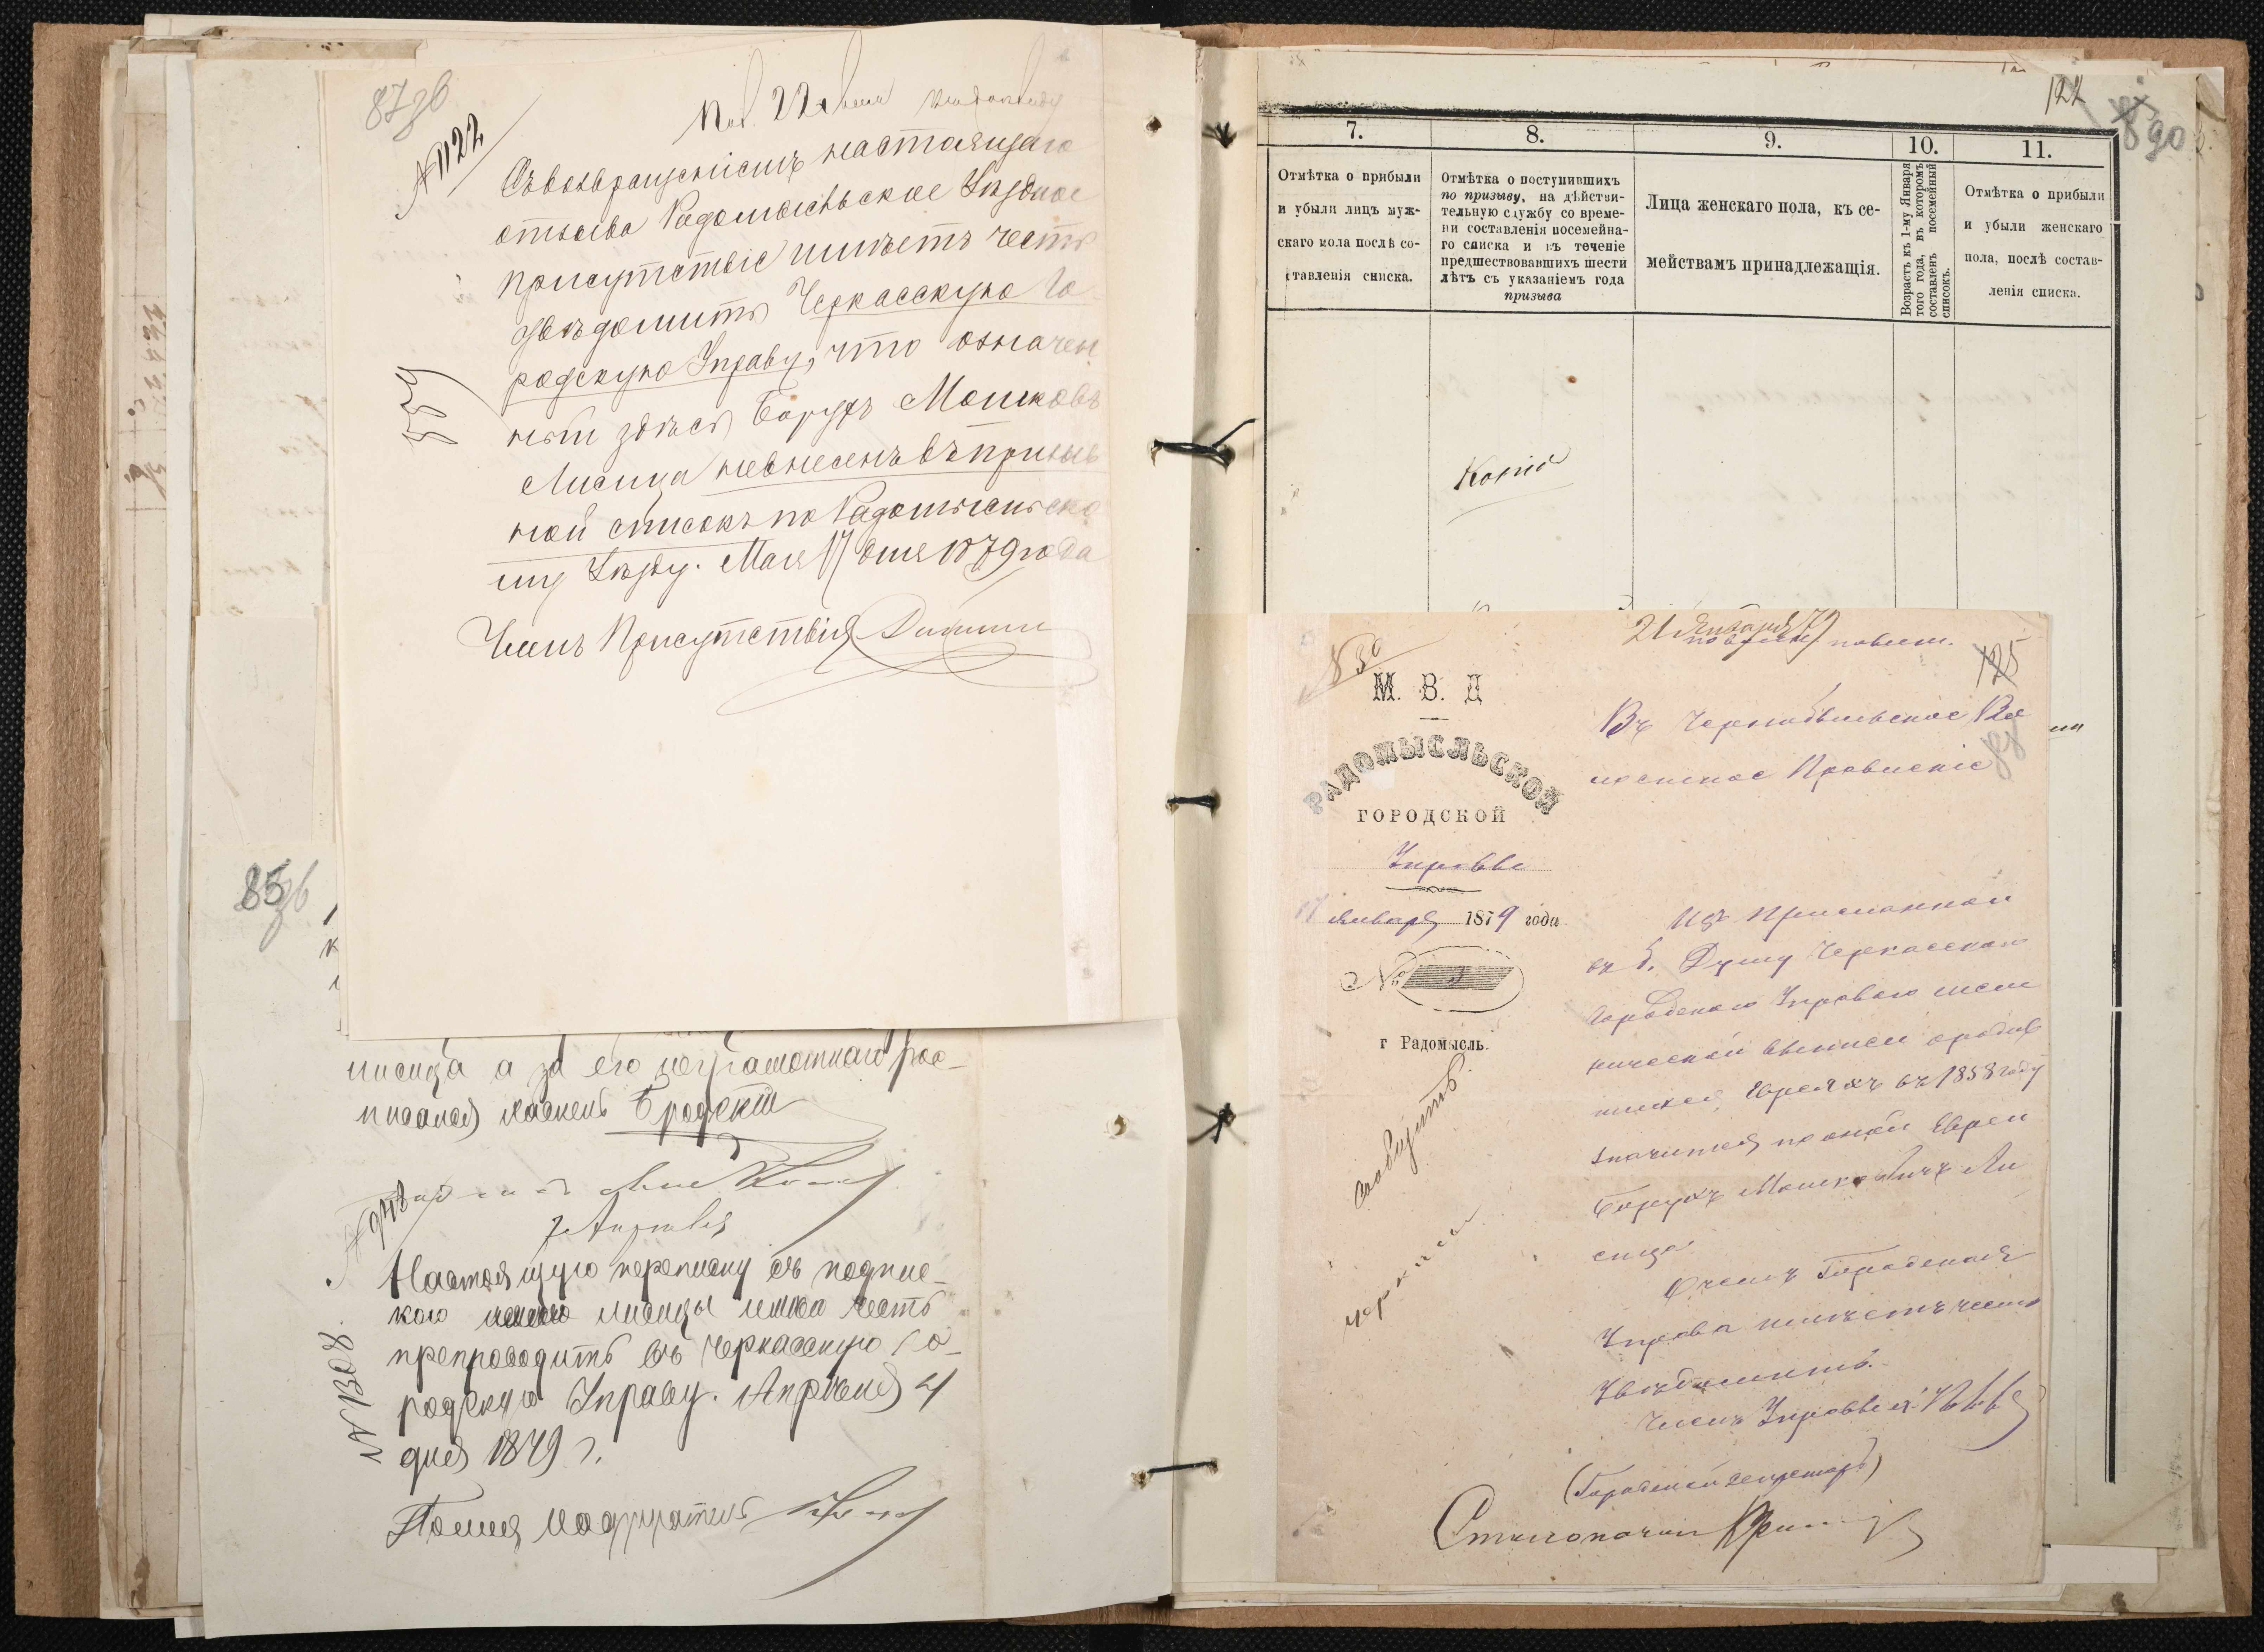 87 об
№ 1122
Пол. 22
Съ возвращеніемъ настоящаго
отзыва Радомысльское Уѣздное
присутствіе имѣетъ честь
увѣдомить Черкасскую Го
родскую Управу, что означен
ный здѣсь Борухъ Мошковъ
Лисица невнесенъ въ призыв
ной списокъ по Радомысльско
му Уѣзду. Мая 17 дня 1879 года
Членъ Присутствія
85 об
лисица а за его неграмотнаго рос-
писался Бродскій
Настоящую переписку съ подпис-
кою лисицы имѣю честь
препроводить въ Черкасскую Го-
родскую Управу. Апрѣля 4
дня 1879 г.
№ 1308.
122
90
7.
8.
9.
10.
11.
Отмѣтка о прибыли
и убыли лицъ муж-
скаго пола послѣ со-
ставленія списка.
Отмѣтка о поступившихъ
по призыву, на дѣйстви-
тельную службу со време-
ни составленія посемейна-
го списка и въ теченіе
предшествовавшихъ шести
лѣтъ съ указаніемъ года
призыва
Лица женскаго пола, къ се-
мействамъ принадлежащія.
Возрастъ къ 1-му Января
того года, въ которомъ
составленъ посемейный
списокъ.
Отмѣтка о прибыли
и убыли женскаго
пола, послѣ состав-
ленія списка.
Копія
21 Января 79
125
М. В. Д
РАДОМЫСЛЬСКОЙ
ГОРОДСКОЙ
Управы
17 января 1879 года
№
г Радомысль.
Сообщить
Черкассы
Въ Чернобыльское Во
лостное Правленіе
Изъ присланной
въ б. Думу Черкасскою
Городскою Управою
выписи о родив
шихся Евреяхъ въ 1858 году
значится по оной Еврей
Борухъ Мошковичъ Ли
сица
О чемъ Городская
Управа имѣетъ честь
Увѣдомить.
Членъ Управы
(Городской Секретарь)
Столоначал